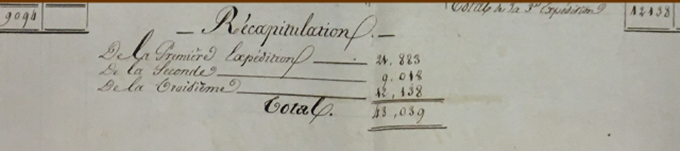 9094 Total de la 3e Expédition 12138
Récapitulation
De la Première Expédition 21,883
De la Seconde 9.018
De la Troisième 12,138
Total. 43,039